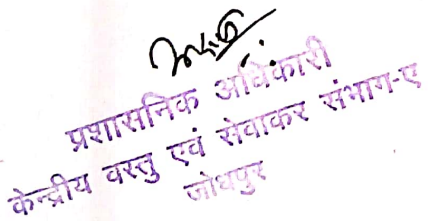 प्रशासनिक अधिकारी
केन्द्रीय वस्तु एवं सेवाकर संभाग-ए
जोधपुर